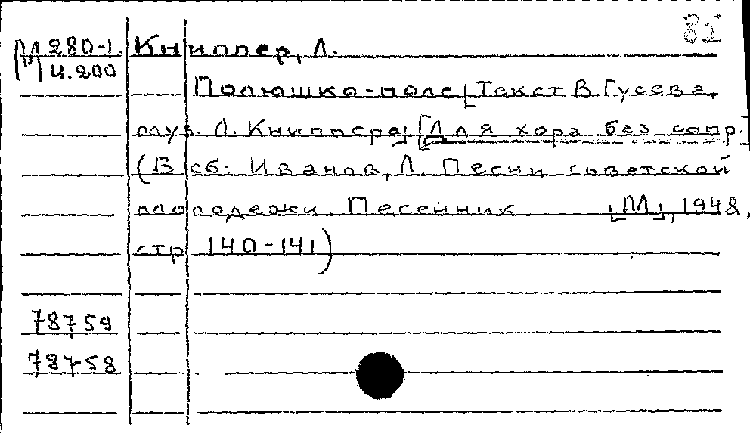 85
М 280-1. Книппер, Л.
И.200
Полюшко-поле[Текст В. Гусева,
муз. Л. Книппера] [Для хора без сопр.]
(В сб: Иванов, Л. Песни советской
молодежи. Песенник [М], 1948,
стр 140-141)
78759
78758